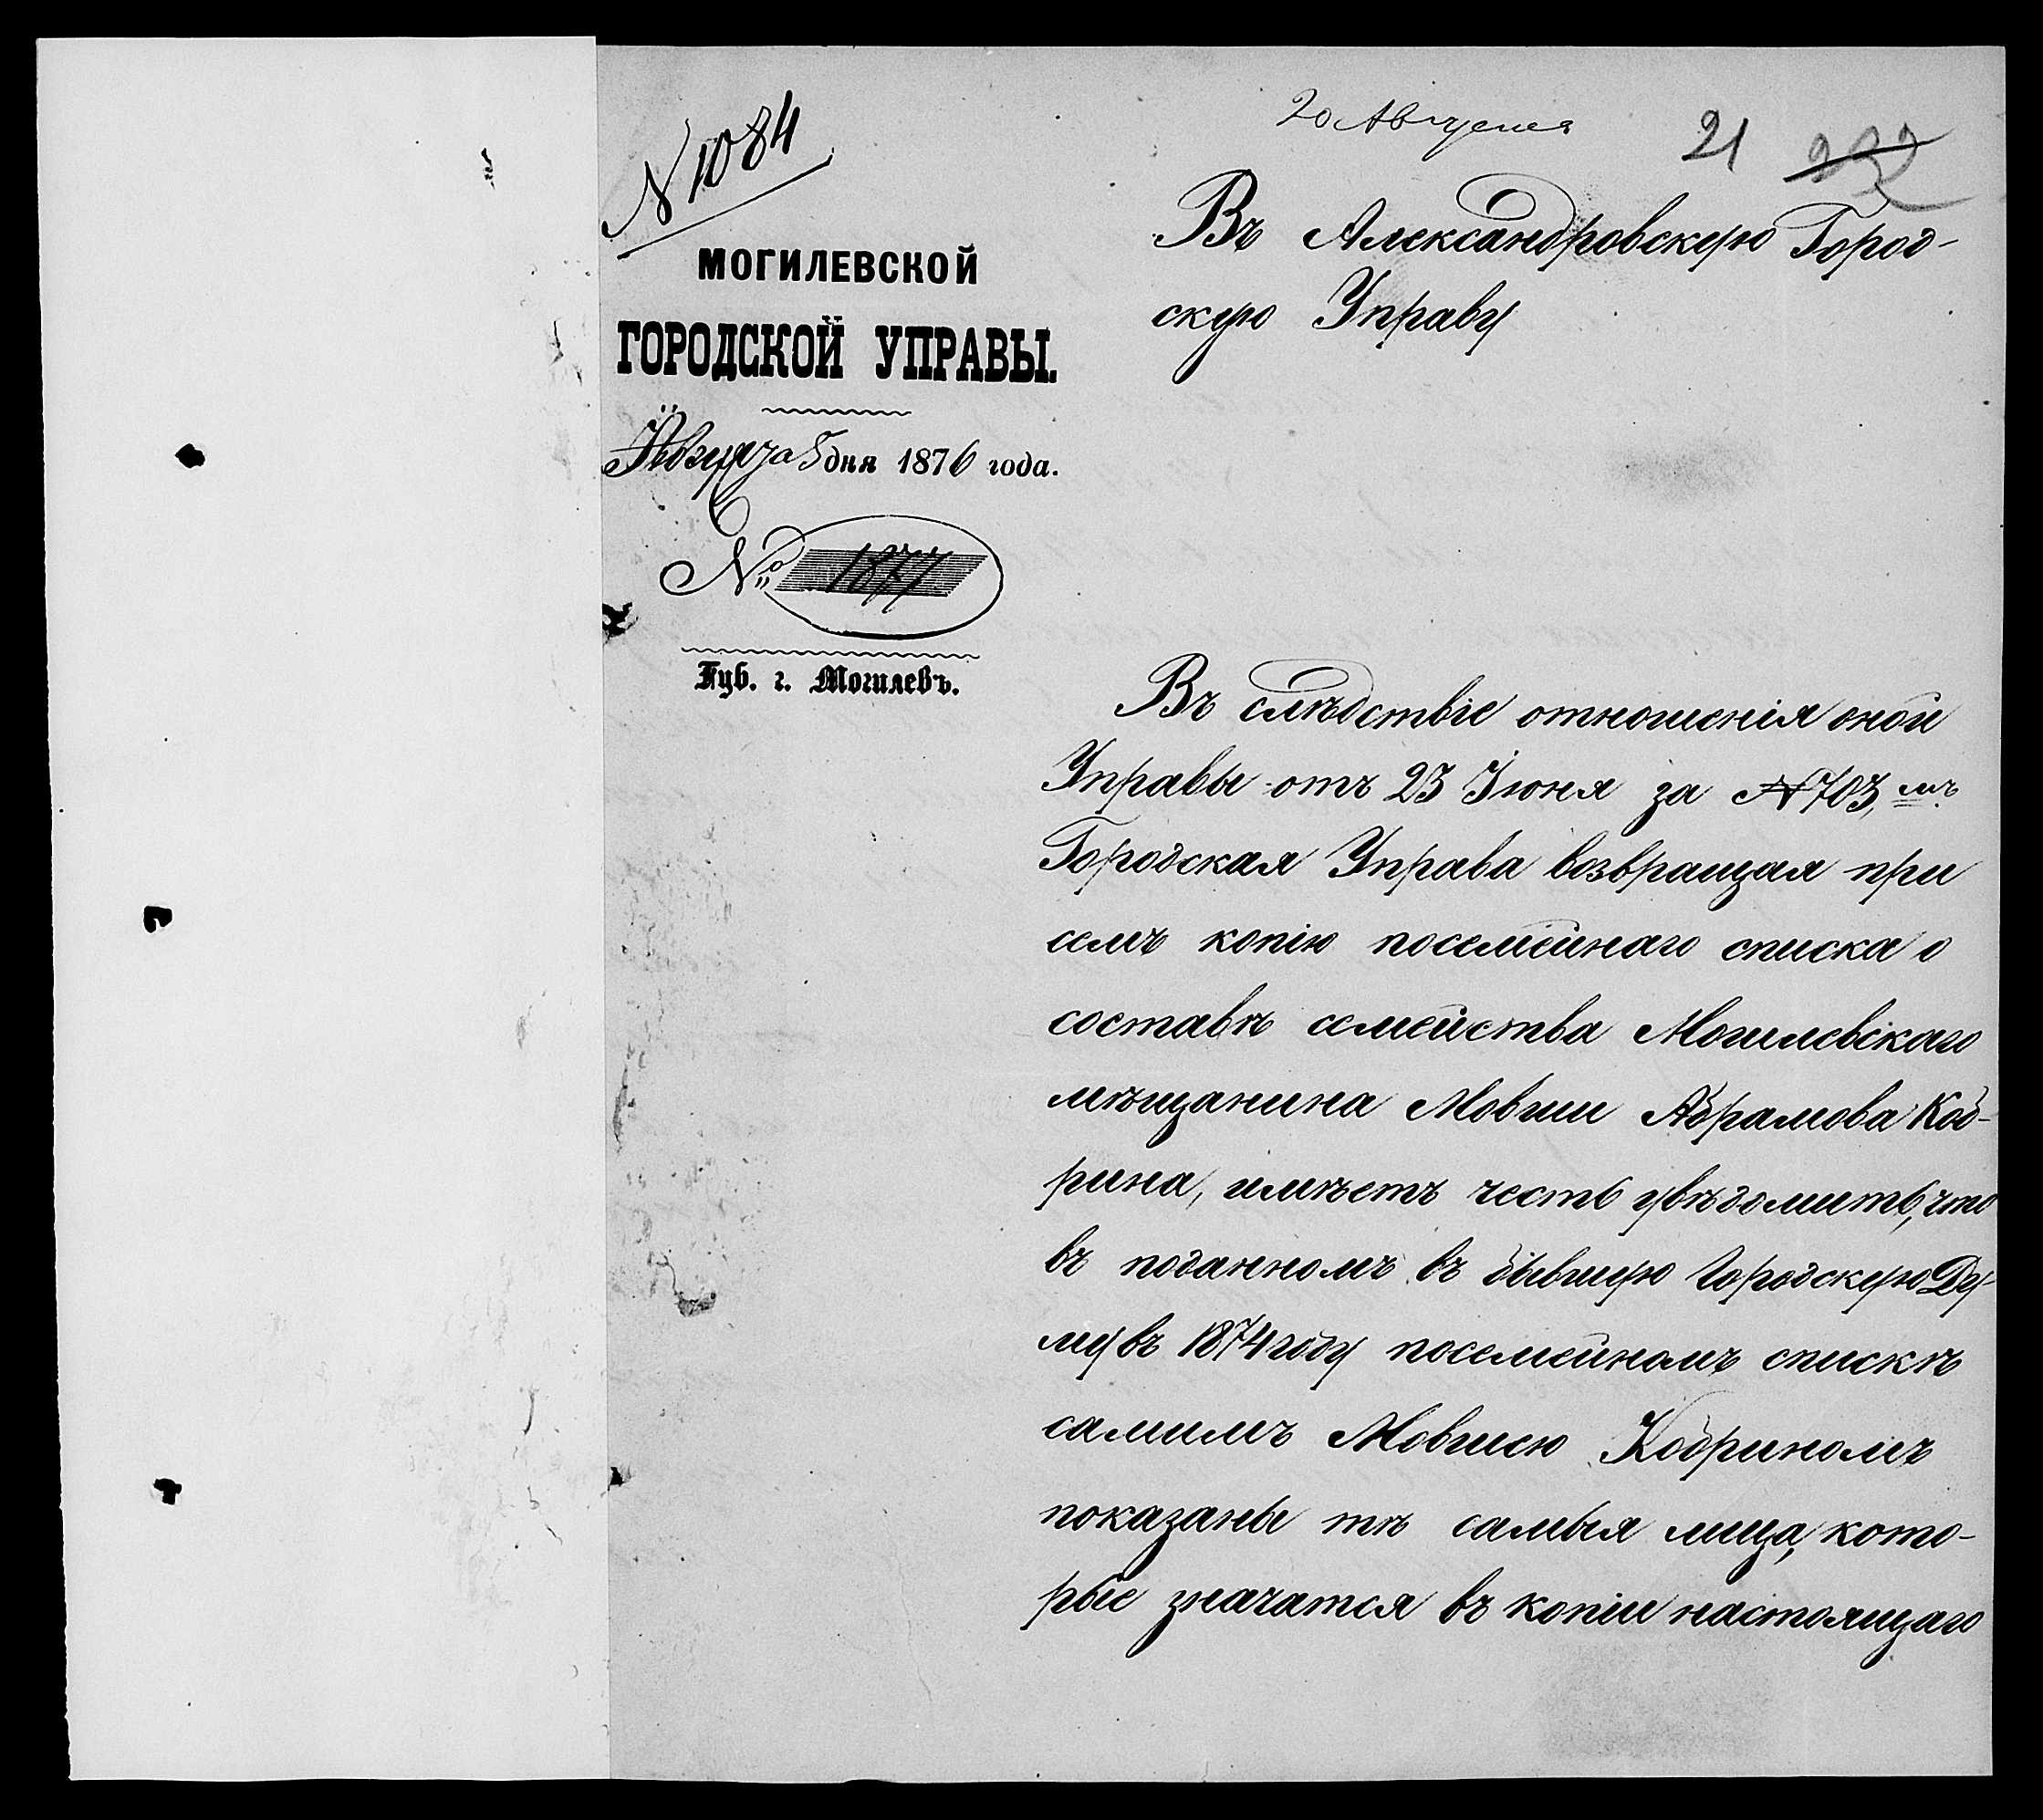 N 1084
МОГИЛЕВСКОЙ
ГОРОДСКОЙ УПРАВЫ.
Августа 5 дня 1876 года.
№ 1877
Губ. г. Могилевъ.
20 Августа
21
232
Въ Александровскую Город-
скую Управу
Въ слѣдствіе отношенія оной
Управы отъ 23 Іюня за N 703, мъ
Городская Управа возвращая при
семъ копію посемейнаго списка о
составѣ семейства Могилевскаго
мѣщанина Мовши Абрамова Коб-
рина, имѣетъ честь увѣдомить, что
въ поданномъ въ бывшую Городскую Ду-
му въ 1874 году посемейномъ спискѣ
самимъ Мовшею Кобриномъ
показаны тѣ самыя лица, кото-
рые значатся въ копіи настоящаго